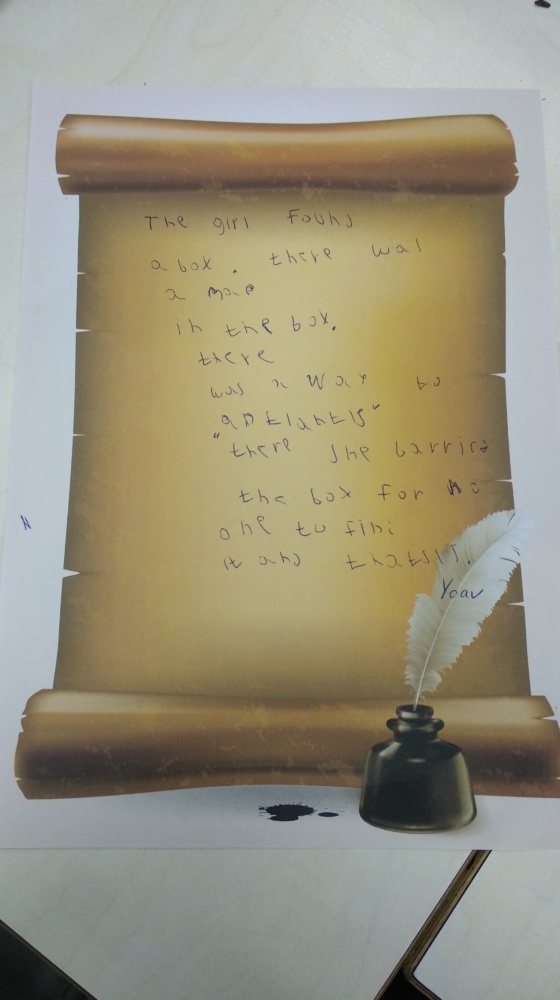 The girl found
a box. there was
a map
in the box.
there
was a way to
antlantis"
"there she barried
the box for no
one to fini
it and thatsIT.
Yoav
N